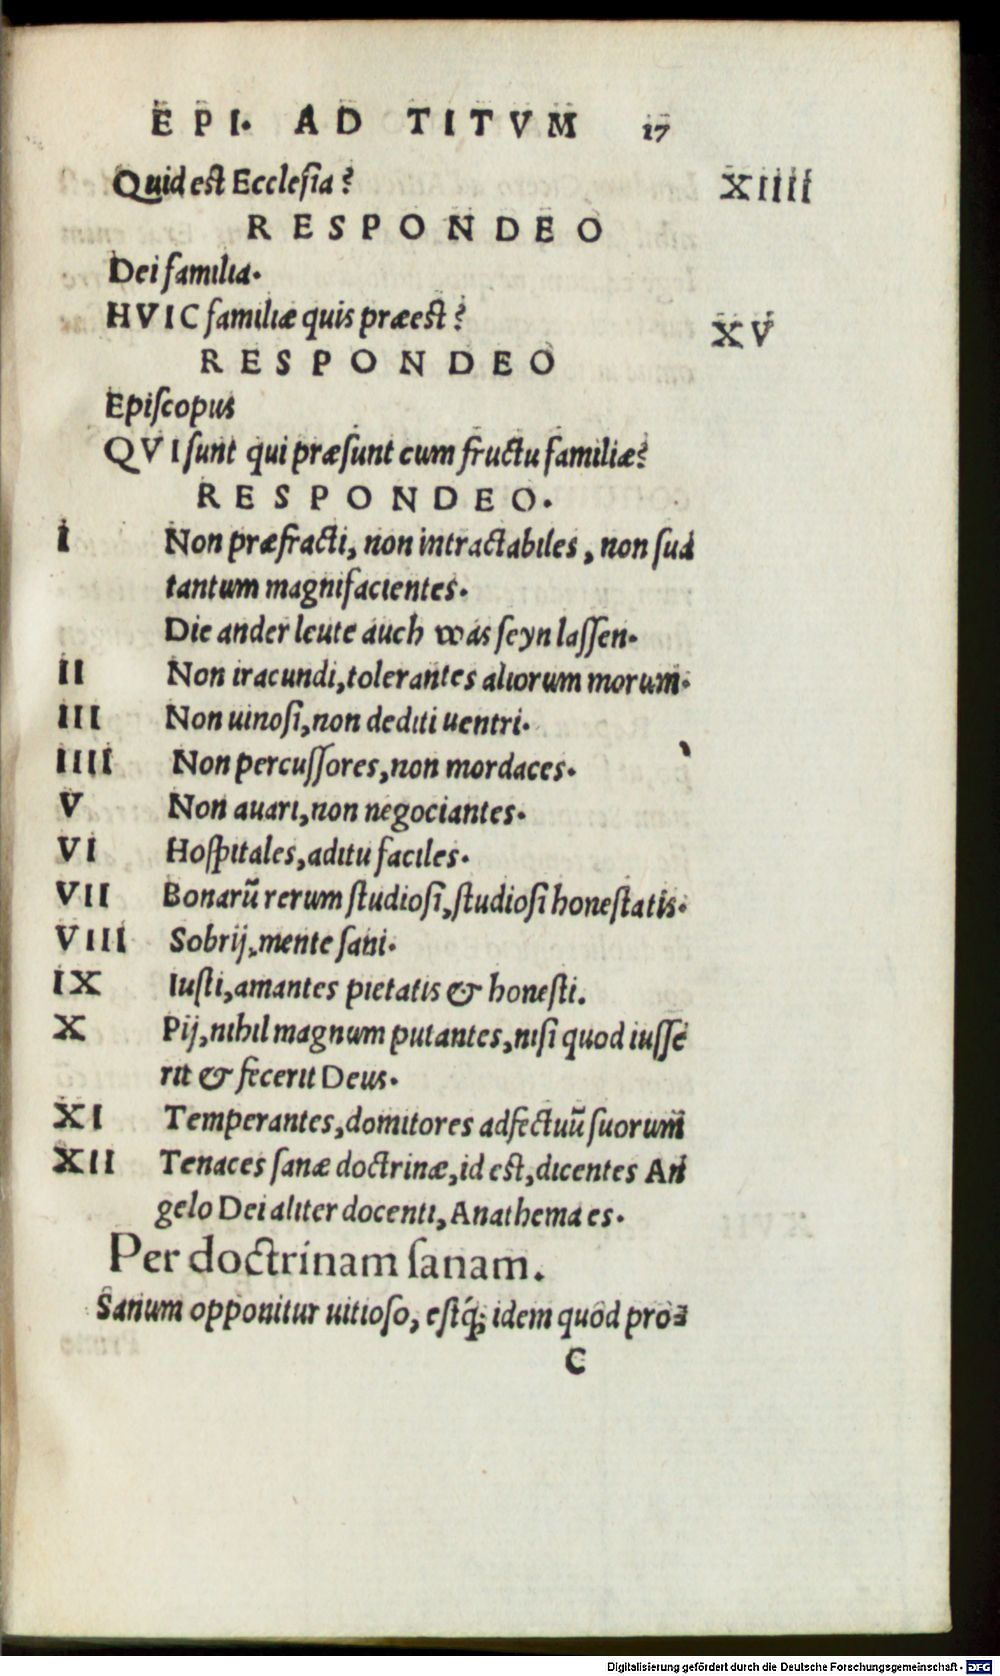 EPI. AD TITVM 17
Quid est Ecclesia? XIIII
RESPONDEO
Dei familia.
HVIC familiæ quis præest? XV
RESPONDEO
Episcopus
QVI sunt qui præsunt cum fructu familiæ?
RESPONDEO.
I Non præfracti, non intractabiles, non sua
tantum magnifacientes.
Die ander leute auch was seyn lassen.
II Non iracundi, tolerantes aliorum morum.
III Non uinosi, non dediti uentri.
IIII Non percussores, non mordaces.
V Non auari, non negociantes.
VI Hospitales, aditu faciles.
VII Bonarũ rerum studiosi, studiosi honestatis.
VIII Sobrij, mente sani.
IX Iusti, amantes pietatis & honesti.
X Pij, nihil magnum putantes, nisi quod iusse
rit & fecerit Deus.
XI Temperantes, domitores adfectuũ suorum
XII Tenaces sanæ doctrinæ, id est, dicentes An
gelo Dei aliter docenti, Anathema es.
Per doctrinam sanam.
Sanum opponitur uitioso, estq́; idem quod pro-
C
Digitalisierung gefördert durch die Deutsche Forschungsgemeinschaft - DFG